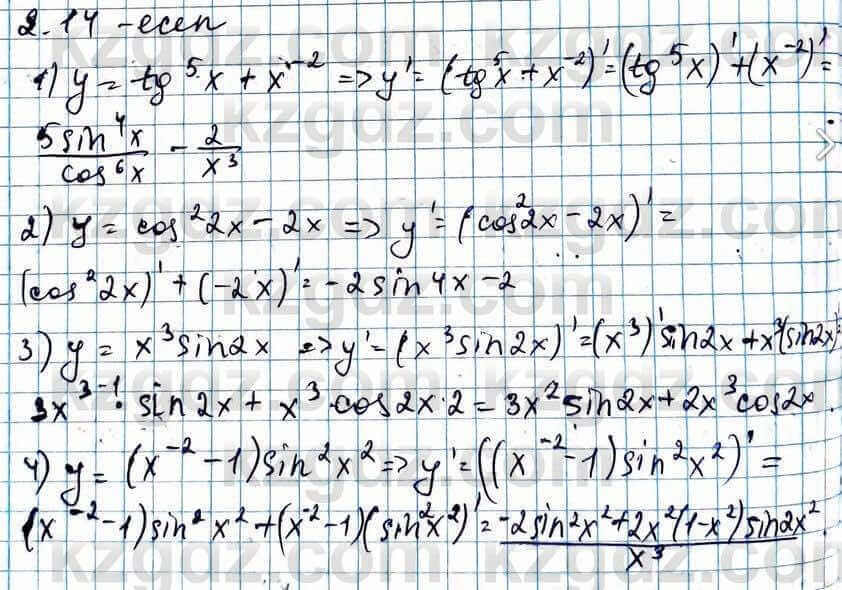 2.14 -есеп
1) y = tg⁵x + x⁻² => y' = (tg⁵x + x⁻²)' = (tg⁵x)' + (x⁻²)' =
5sin⁴x/cos⁶x - 2/x³
2) y = cos²2x - 2x => y' = (cos²2x - 2x)' =
(cos²2x)' + (-2x)' = -2sin4x - 2
3) y = x³sin2x => y' = (x³sin2x)' = (x³)'sin2x + x³(sin2x)'
3x³⁻¹· sin2x + x³·cos2x·2 = 3x²sin2x + 2x³cos2x.
4) y = (x⁻² - 1)sin²x² => y' = ((x⁻² - 1)sin²x²)' =
(x⁻² - 1)sin²x² + (x⁻² - 1)(sin²x²)' = -2sin²x² + 2x²(1-x²)sin2x²/x³.
kzgdz.com